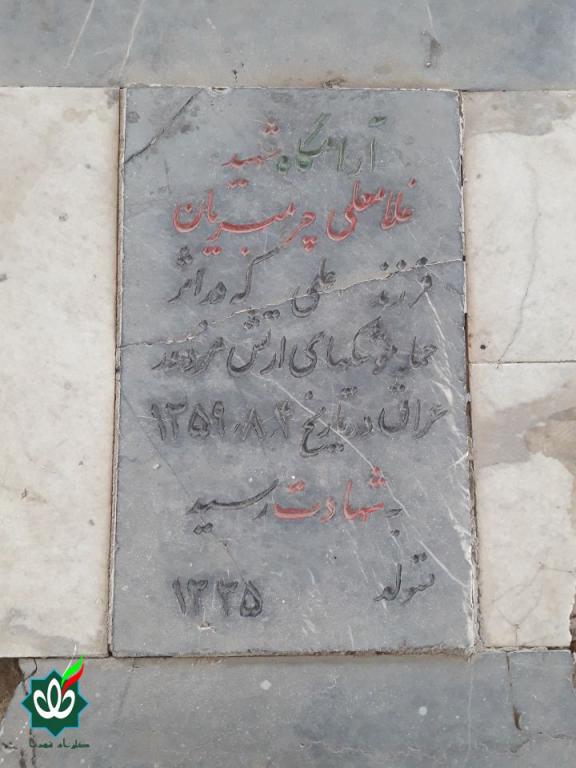 آرامگاه شهید
غلامعلی چرمبریان
فرزند علی که در اثر
حمله موشکهای ارتش مزدور
عراق در تاریخ ۱۳۵۹،۸،۴
به شهادت رسید
متولد
۱۳۳۵
گلزار شهدا